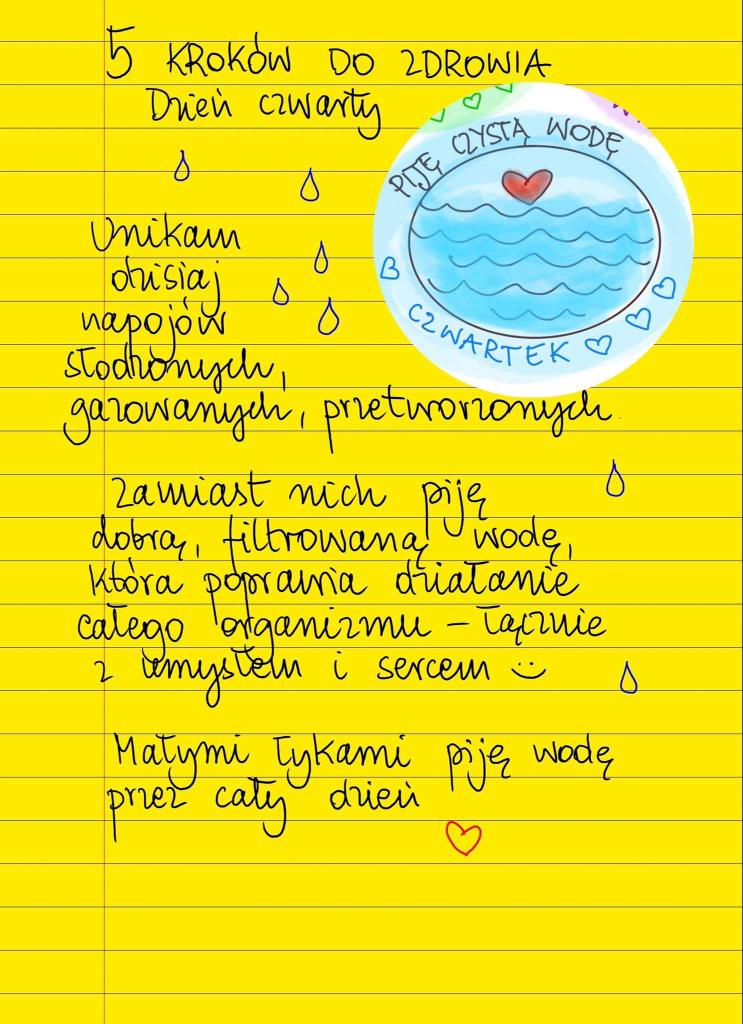 5 KROKÓW DO ZDROWIA
Dzień czwarty
PIJĘ CZYSTĄ WODĘ
CZWARTEK
Unikam
dzisiaj
napojów
słodzonych,
gazowanych, przetworzonych.
Zamiast nich piję
dobrą, filtrowaną wodę,
która poprawia działanie
całego organizmu – łącznie
z umysłem i sercem :)
Małymi łykami piję wodę
przez cały dzień